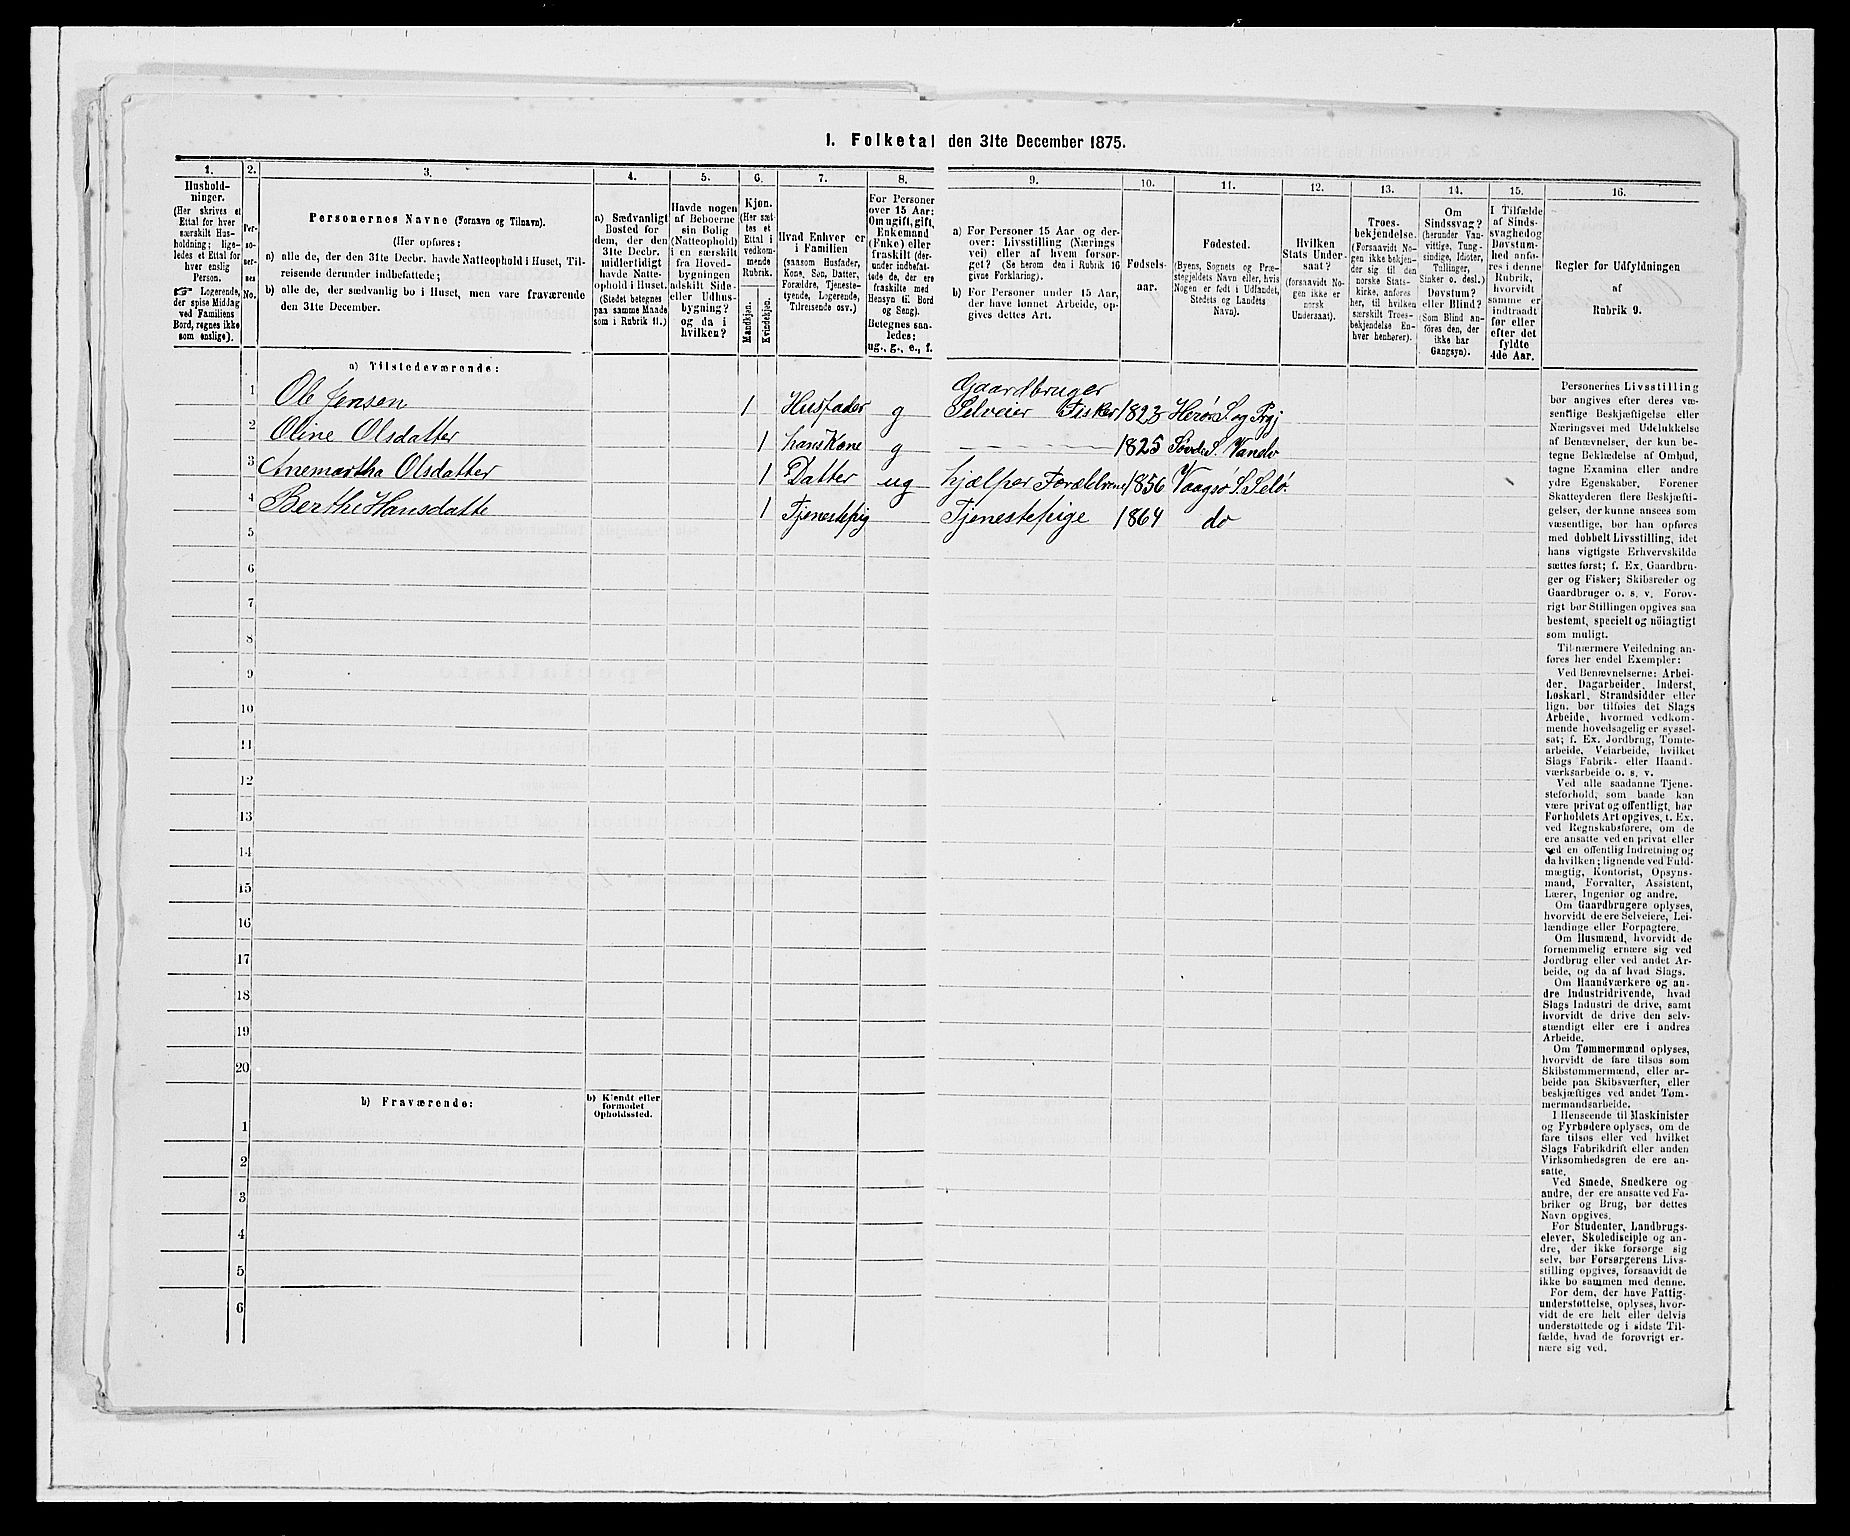 I. Folketal den 31te December 1875.
1. 2. 3. 4. 5. 6. 7. 8. 9. 10. 11. 12. 13. 14. 15. 16.
Hushold-
ninger.
(Her skrives et
Ettal for hver
særskilt Hus-
holdning; lige-
ledes et Ettal for
hver enslig
Person.
☞ Logerende,
der spise Middag
ved Familiens
Bord, regnes ikke
som enslige).
Per-
so-
ner-
nes
No.
Personernes Navne (Fornavn og Tilnavn).
(Her opføres:
a) alle de, der den 31te Decbr. havde Natteophold i Huset, Til-
reisende derunder indbefattede;
b) alle de, der sædvanlig bo i Huset, men vare fraværende
den 31te December.
a) Sædvanligt
Bosted for
dem, der den
31te Decbr.
midlertidigt
havde Natte-
ophold i Huset.
(Stedet betegnes
paa samme Maade
som i Rubrik 11.)
Havde nogen
af Beboerne
sin Bolig
(Natteophold)
i en særskilt
fra Hoved-
bygningen
adskilt Side-
eller Udhus-
bygning?
og da i
hvilken?
Kjøn.
(Her sæt-
tes et
Ettal i
vedkom-
mende
Rubrik.
Mandkjøn.
Kvindekjøn.
Hvad Enhver er
i Familien
(saasom Husfader,
Kone, Søn, Datter,
Forældre, Tjeneste-
tyende, Logerende,
Tilreisende osv.)
For Personer
over 15 Aar:
Om ugift, gift,
Enkemand
(Enke) eller
fraskilt (der-
under indbefat-
tede de, der ere
fraskilte med
Hensyn til Bord
og Seng).
Betegnes saa-
ledes:
ug., g., e., f.
a) For Personer 15 Aar og der-
over: Livsstilling (Nærings
vei) eller af hvem forsør-
get? (Se herom den i Rubrik 16
givne Forklaring).
b) For Personer under 15 Aar,
der have lønnet Arbeide, op-
gives dettes Art.
Fødsels-
aar.
Fødested.
(Byens, Sognets og Præ-
stegjeldets Navn eller, hvis
Nogen er født i Udlandet,
Stedets og Landets
Navn).
Hvilken
Stats Under-
saat?
(forsaavidt No-
gen ikke er
norsk
Undersaat).
Troes-
bekjendelse.
(Forsaavidt No-
gen ikke bekjen-
der sig til den
norske Stats-
kirke, anføres
her, til hvilken
særskilt Troes-
bekjendelse En-
hver henhører).
Om
Sindssvag?
(herunder Van-
vittige, Tung-
sindige, Idioter,
Tullinger,
Sinker o. desl.)
Døvstum?
eller Blind?
(Som Blind an-
føres den, der
ikke har
Gangsyn).
I Tilfælde
af Sinds-
svaghed og
Døvstum-
hed anfø-
res i denne
Rubrik,
hvorvidt
samme er
indtraadt
før eller
efter det
fyldte
4de Aar.
Regler for Udfyldningen
af
Rubrik 9.
a) Tilstedeværende:
1 Ole Jensen 1 Husfader g Gaardbruger
Selveier Fisker 1823 Herø S. og Prgj
2 Oline Olsdatter 1 hans Kone g 1825 S. Vanelv
3 Anemartha Olsdatter 1 Datter ug hjælper Forældrene 1856 Vaagsø S. Selø.
4 Berthe Hansdatte 1 Tjenestepig Tjenestepige 1864 do
5
6
7
8
9
10
11
12
13
14
15
16
17
18
19
20
b) Fraværende:
b) Kjendt eller
formodet
Opholdssted.
1
2
3
4
5
6
Personernes Livsstilling
bør angives efter deres væ-
sentlige Beskjæftigelse eller
Næringsvei med Udelukkelse
af Benævnelser, der kun be-
tegne Beklædelse af Ombud,
tagne Examina eller andre
ydre Egenskaber. Forener
Skatteyderen flere Beskjæfti-
gelser, der kunne ansees som
væsentlige, bør han opføres
med dobbelt Livsstilling, idet
hans vigtigste Erhvervskilde
sættes først; f. Ex. Gaardbru-
ger og Fisker; Skibsreder og
Gaardbruger o. s. v. Forøv-
rigt bør Stillingen opgives saa
bestemt, specielt og nöiagtigt
som muligt.
Til nærmere Veiledning an-
føres her endel Exempler:
Ved Benævnelserne: Arbei-
der, Dagarbeider, Inderst,
Løskarl, Strandsidder eller
lign. bør tilføies det Slags
Arbeide, hvormed vedkom-
mende hovedsagelig er syssel-
sat; f. Ex. Jordbrug, Tomte-
arbeide, Veiarbeide, hvilket
Slags Fabrik- eller Haand-
værksarbeide o. s. v.
Ved alle saadanne Tjene-
steforhold, som baade kan
være privat og offentligt, bør
Forholdets Art opgives, t. Ex.
ved Regnskabsførere, om de
ere ansatte ved en privat eller
ved en offentlig Indretning og
da hvilken; lignende ved Fuld-
mægtig, Kontorist, Opsyns-
mand, Forvalter, Assistent,
Lærer, Ingeniør og andre.
Om Gaardbrugere oplyses,
hvorvidt de ere Selveiere, Lei-
lændinge eller Forpagtere.
Om Husmænd, hvorvidt de
fornemmelig ernære sig ved
Jordbrug eller ved andet Ar-
beide, og da af hvad Slags.
Om Haandværkere og an-
dre Industridrivende, hvad
Slags Industri de drive, samt
hvorvidt de drive den selv-
stændigt eller ere i andres
Arbeide.
Om Tømmermænd oplyses,
hvorvidt de fare tilsøs som
Skibstømmermænd, eller ar-
beide paa Skibsværfter, eller
beskjæftiges ved andet Tøm-
mermandsarbeide.
I Henseende til Maskinister
og Fyrbødere oplyses, om de
fare tilsøs eller ved hvilket
Slags Fabrikdrift eller anden
Virksomhedsgren de ere an-
satte.
Ved Smede, Snedkere og
andre, der ere ansatte ved Fa-
briker og Brug, bør dettes
Navn opgives.
For Studenter, Landbrugs-
elever, Skoledisciple og an-
dre, der ikke forsørge sig
selv, bør Forsørgerens Livs-
stilling opgives, forsaavidt de
ikke bo sammen med denne.
For dem, der have Fattig-
understøttelse, oplyses, hvor-
vidt de ere helt eller delvis
understøttede og i sidste Til-
fælde, hvad de forøvrigt er-
nære sig ved.